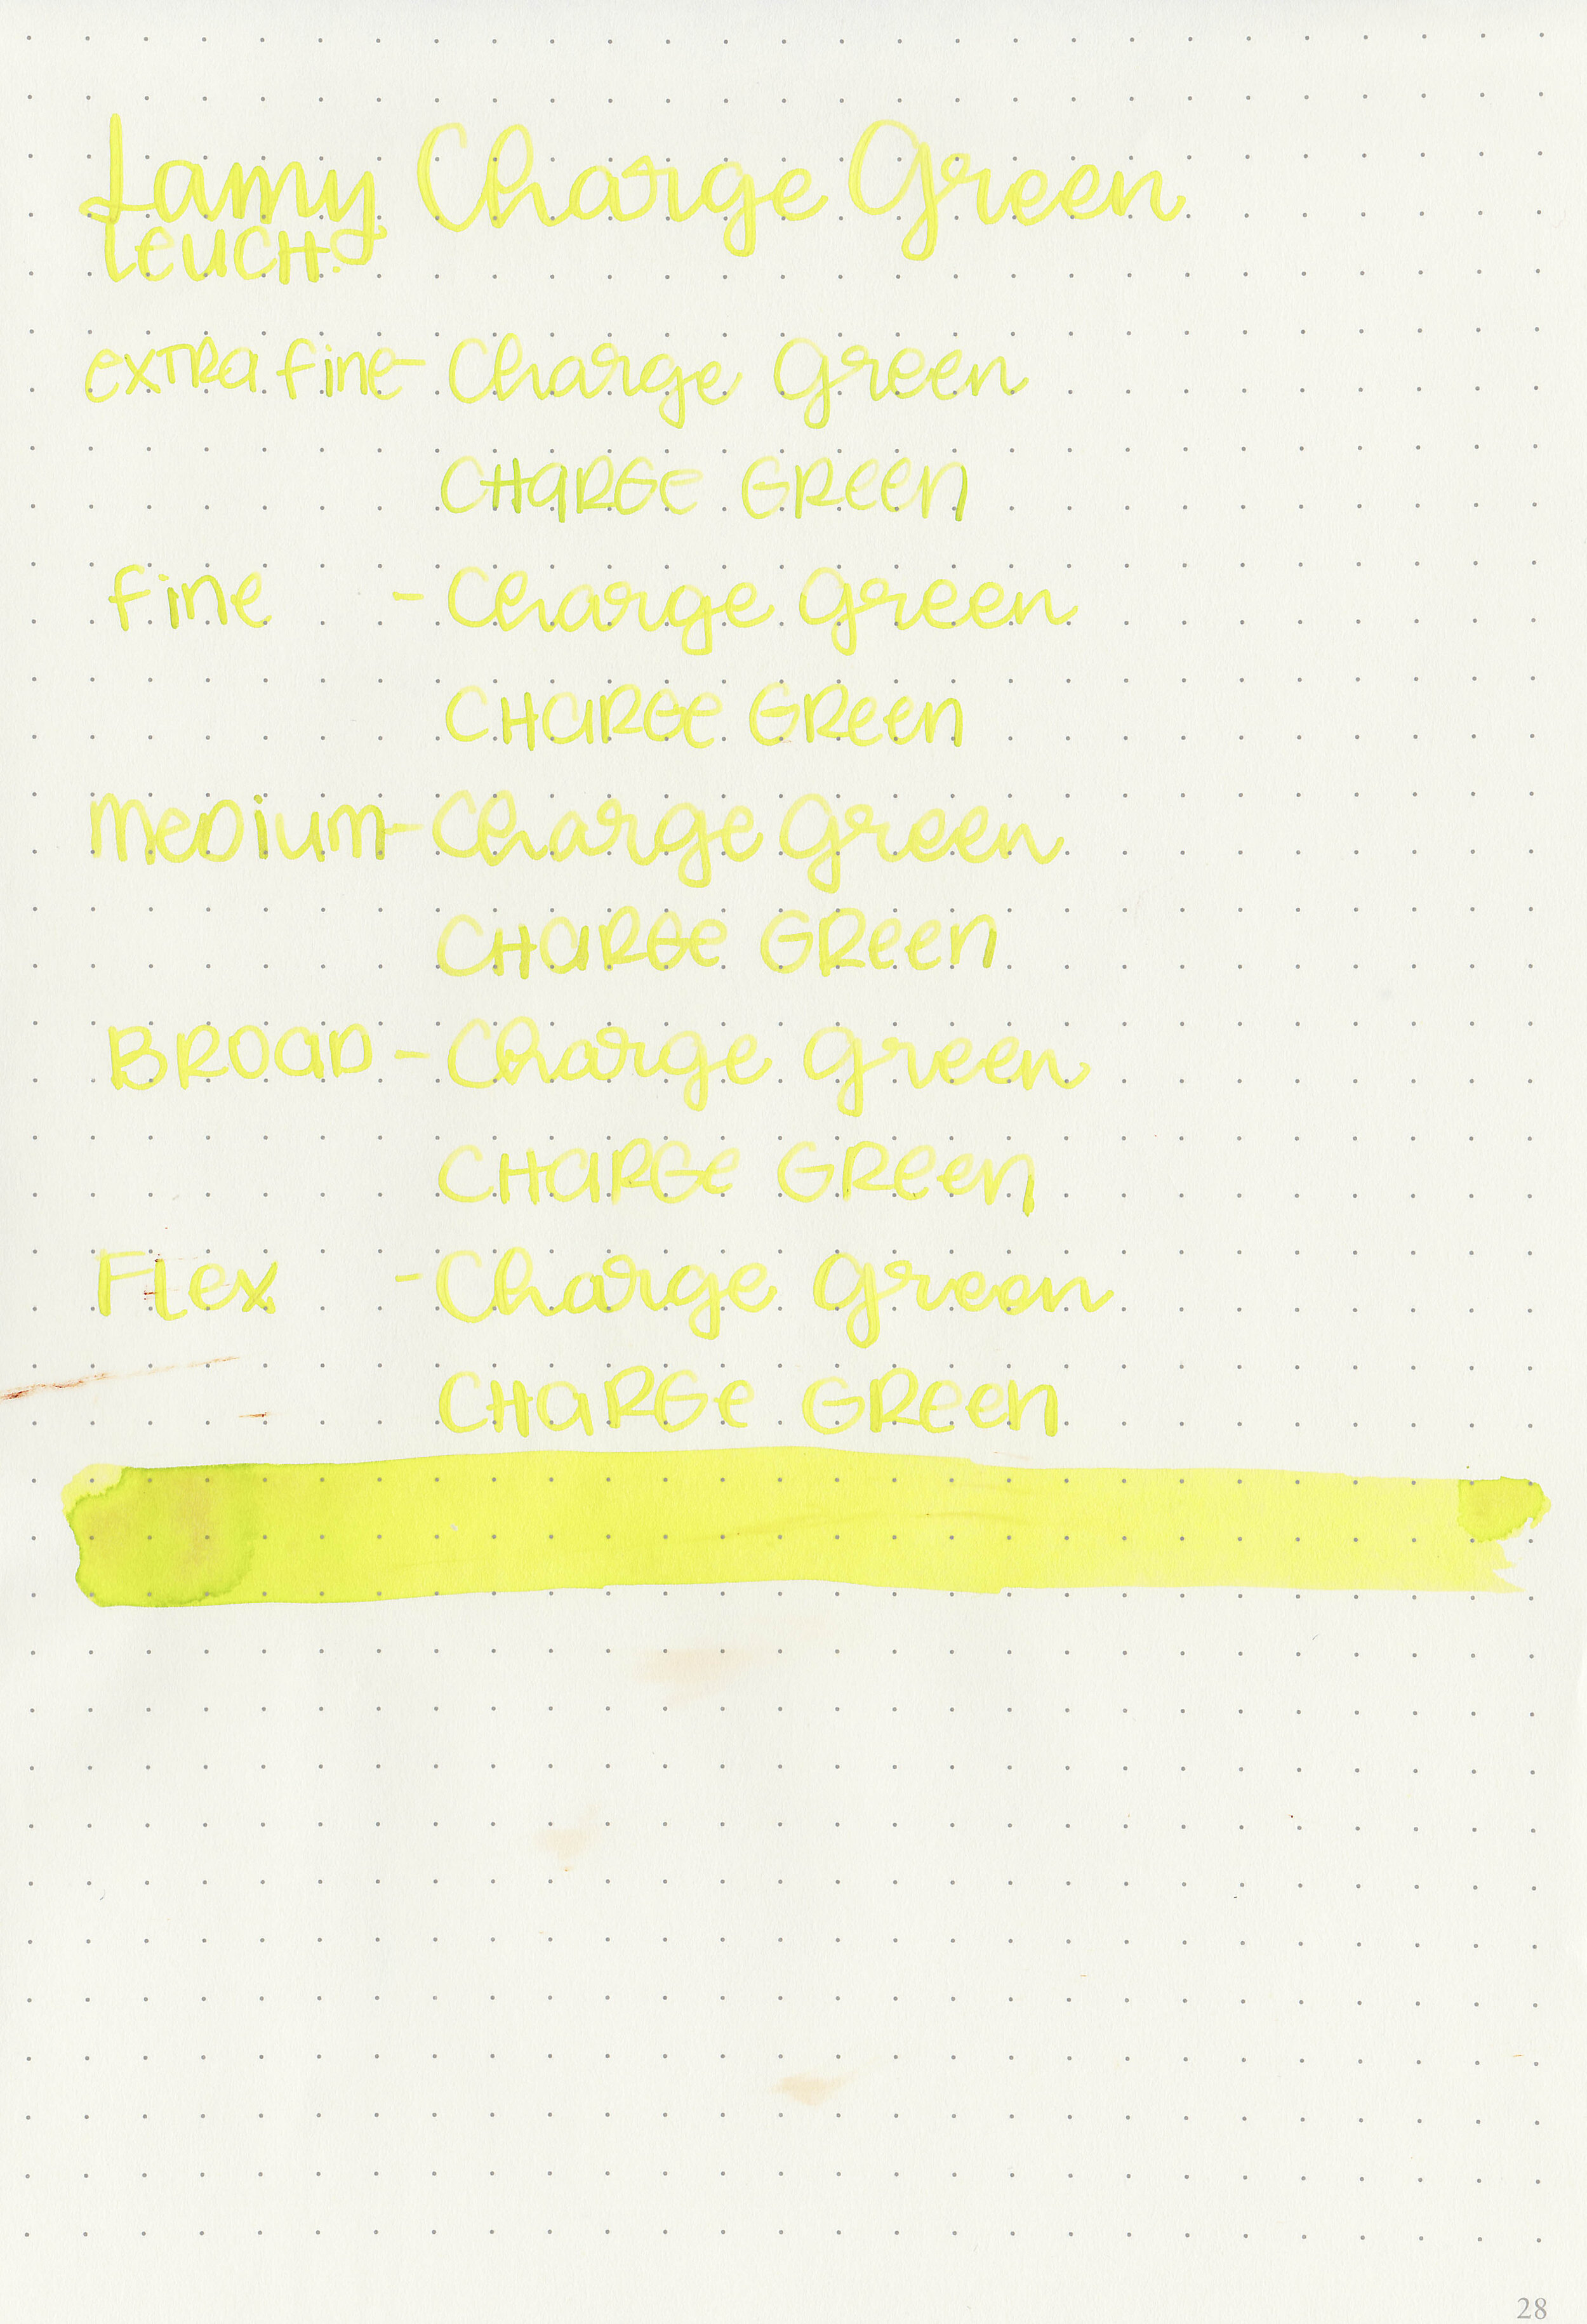 Lamy Charge Green
Leuch.
extra fine - Charge Green
CHARGE GREEN
fine - Charge Green
CHARGE GREEN
medium - Charge Green
CHARGE GREEN
BROAD - Charge Green
CHARGE GREEN
Flex - Charge Green
CHARGE GREEN
28